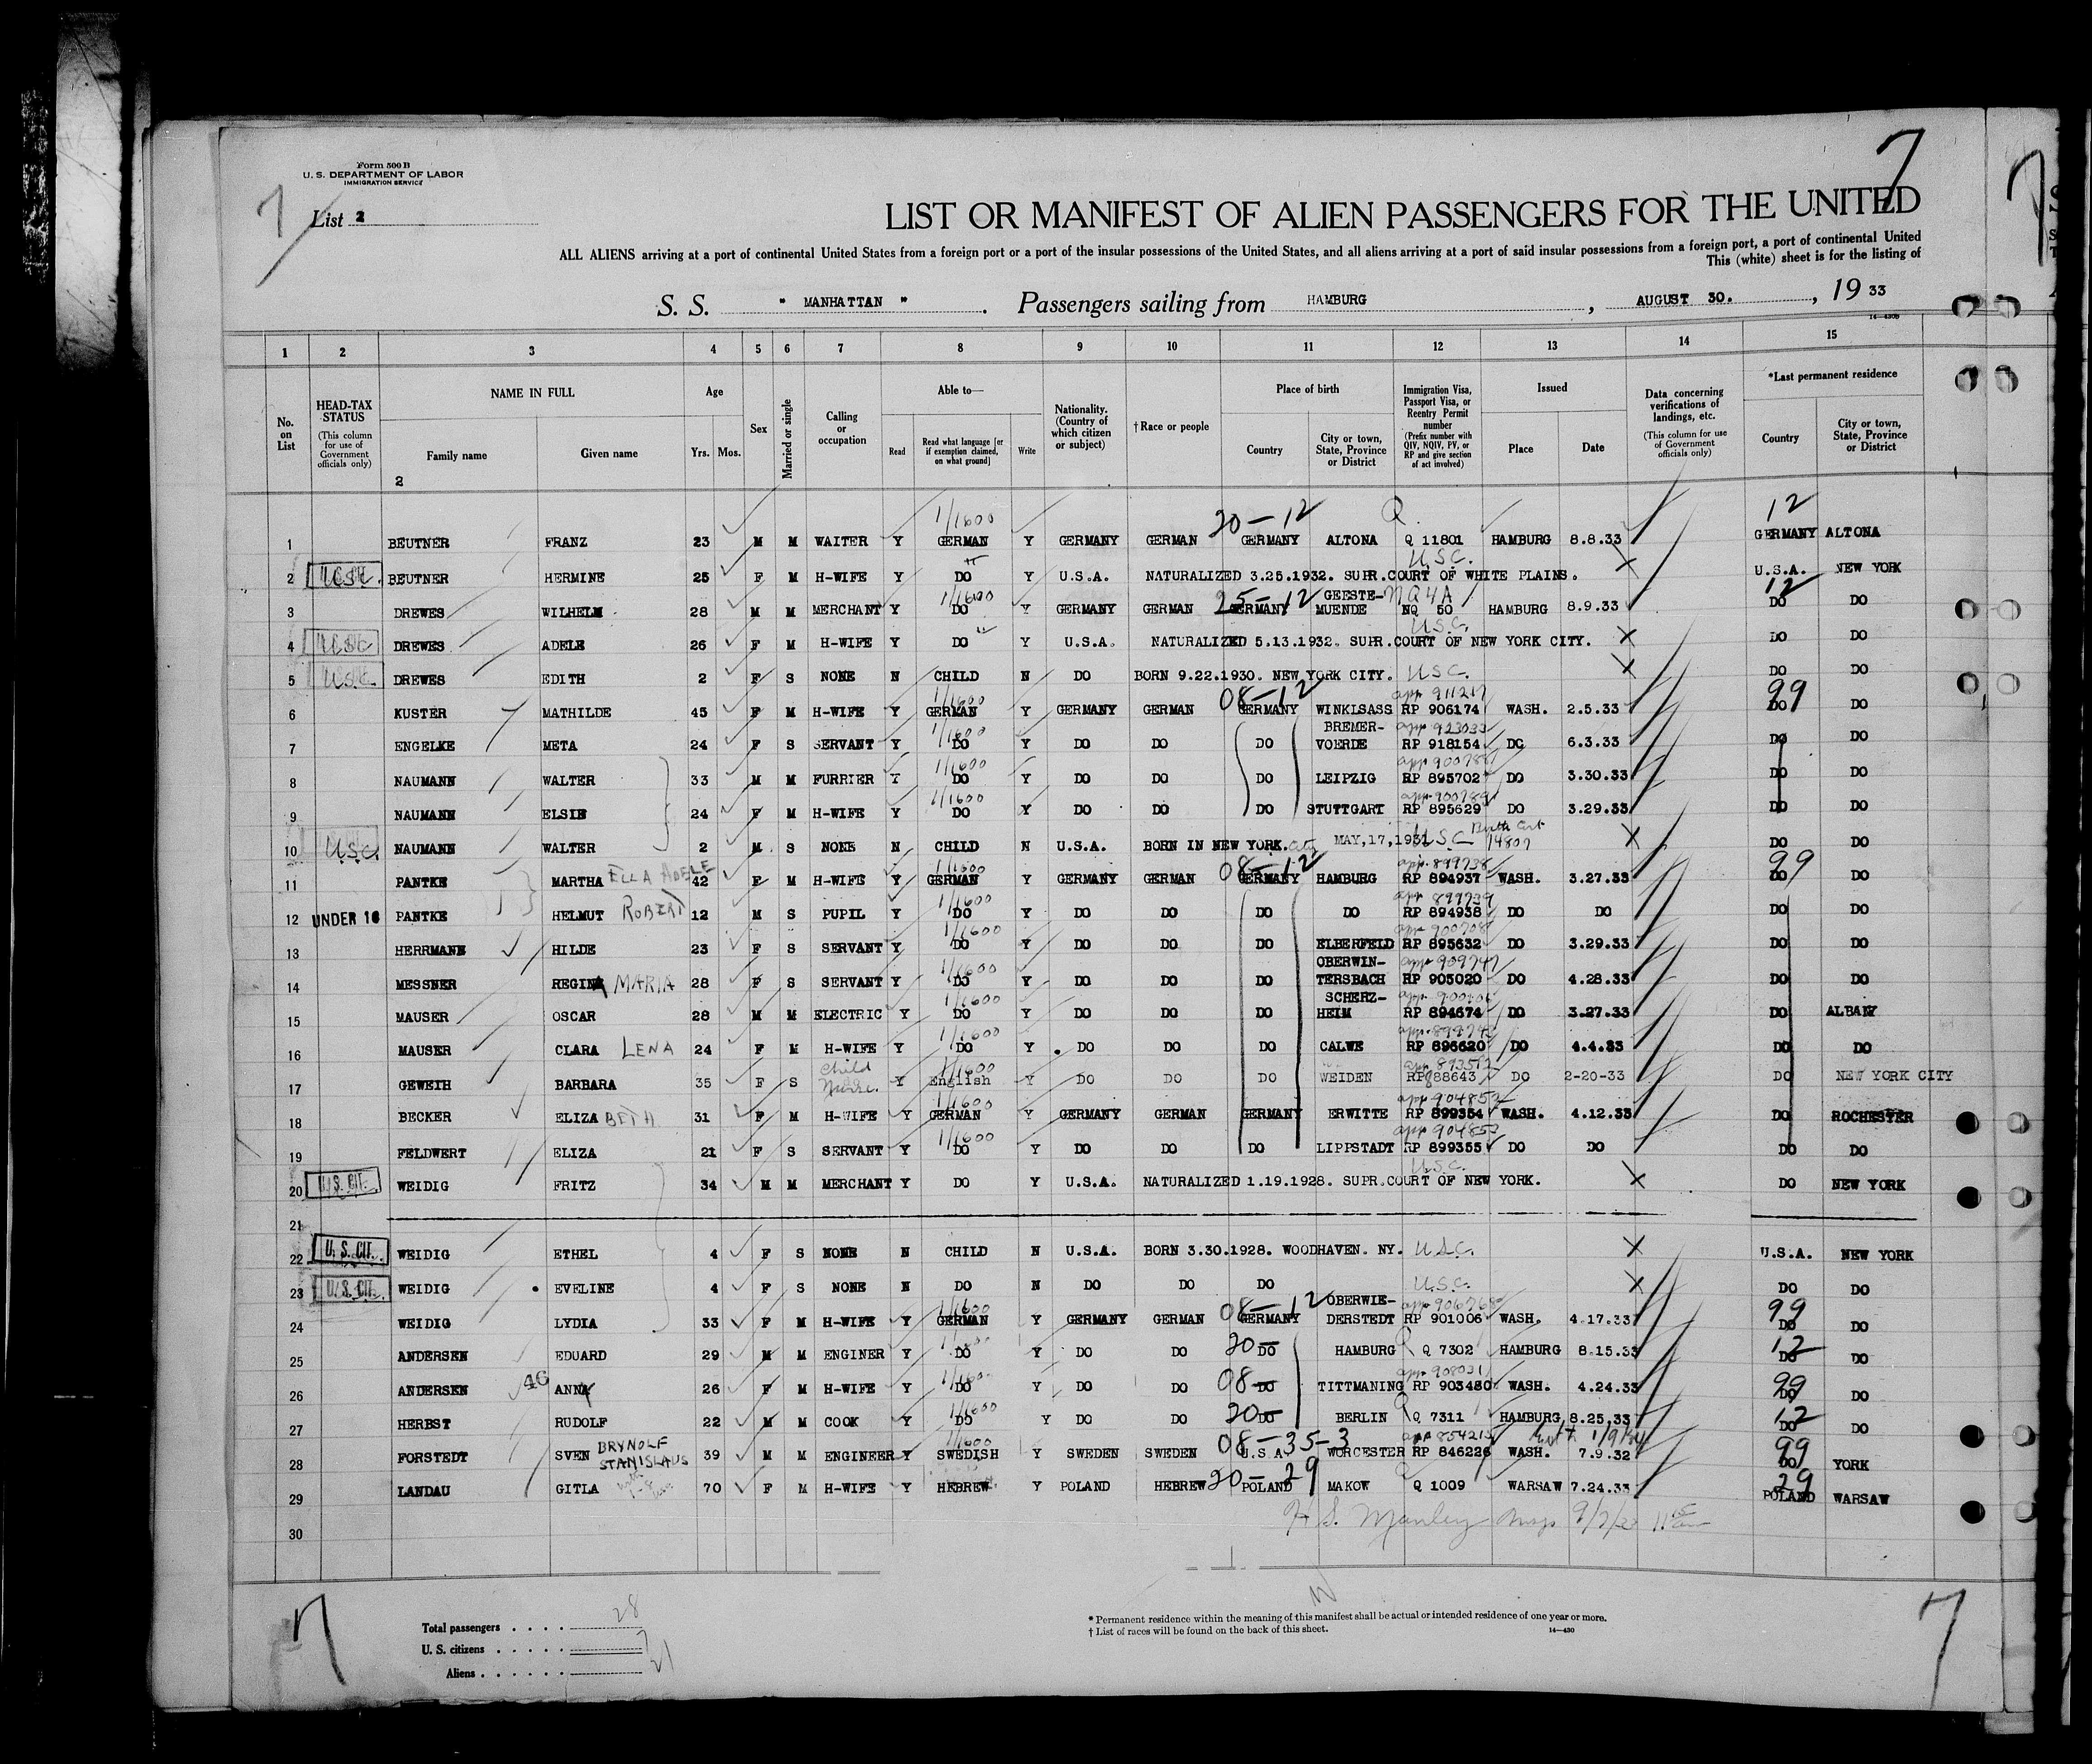 Form 500 B
U. S. DEPARTMENT OF LABOR
IMMIGRATION SERVICE
7
7
7
List 2
LIST OR MANIFEST OF ALIEN PASSENGERS FOR THE UNITED
ALL ALIENS arriving at a port of continental United States from a foreign port or a port of the insular possessions of the United States, and all aliens arriving at a port of said insular possessions from a foreign port, a port of continental United
This (white) sheet is for the listing of
S. S. " MANHATTAN ". Passengers sailing from HAMBURG, AUGUST 30., 19 33
1 2 3 4 5 6 7 8 9 10 11 12 13 14 15
No. on List
HEAD-TAX STATUS (This column for use of Government officials only)
NAME IN FULL
Family name Given name
2
Age
Yrs. Mos.
Sex
Married or single
Calling or occupation
Able to—
Read
Read what language [or if exemption claimed, on what ground]
Write
Nationality. (Country of which citizen or subject)
† Race or people
Place of birth
Country
City or town, State, Province or District
Immigration Visa, Passport Visa, or Reentry Permit number (Prefix number with QIV, NQIV, PV, or RP and give section of act involved)
Issued
Place Date
Data concerning verifications of landings, etc. (This column for use of Government officials only)
*Last permanent residence
Country
City or town, State, Province or District
1/1600 20-12 Q 12
1 BEUTNER FRANZ 23 M M WAITER Y GERMAN Y GERMANY GERMAN GERMANY ALTONA Q 11801 HAMBURG 8.8.33 GERMANY ALTONA
U.S.C.
2 U.S.C. BEUTNER HERMINE 25 F M H-WIFE Y DO Y U.S.A. NATURALIZED 3.25.1932. SUPR.COURT OF WHITE PLAINS. U.S.A. NEW YORK
1/1600 25-12 GEESTE- NQ4A 12
3 DREWES WILHELM 28 M M MERCHANT Y DO Y GERMANY GERMAN GERMANY MUENDE NQ 50 HAMBURG 8.9.33 DO DO
U.S.C.
4 U.S.C DREWES ADELE 26 F M H-WIFE Y DO Y U.S.A. NATURALIZED 5.13.1932. SUPR.COURT OF NEW YORK CITY. X DO DO
5 U.S.C. DREWES EDITH 2 F S NONE N CHILD N DO BORN 9.22.1930. NEW YORK CITY. U.S.C. X DO DO
1/1600 08-12 app 911217 99
6 KUSTER MATHILDE 45 F M H-WIFE Y GERMAN Y GERMANY GERMAN GERMANY WINKLSASS RP 906174 WASH. 2.5.33 DO DO
1/1600 BREMER- app 923033
7 ENGELKE META 24 F S SERVANT Y DO Y DO DO DO VOERDE RP 918154 DO 6.3.33 DO DO
1/1600
8 NAUMANN WALTER 33 M M FURRIER Y DO Y DO DO DO LEIPZIG RP 895702 DO 3.30.33 DO DO
1/1600 app 900789
9 NAUMANN ELSIE 24 F M H-WIFE Y DO Y DO DO DO STUTTGART RP 895629 DO 3.29.33 DO DO
10 U.S.C. NAUMANN WALTER 2 M S NONE N CHILD N U.S.A. BORN IN NEW YORK. City MAY,17,1931 U.S.C Birth Cert 14807 X DO DO
1/1600 08-12 app 899738 99
11 PANTKE MARTHA ELLA ADELE 42 F M H-WIFE Y GERMAN Y GERMANY GERMAN GERMANY HAMBURG RP 894937 WASH. 3.27.33 DO DO
1/1600 app 899739
12 UNDER 16 PANTKE HELMUT ROBERT 12 M S PUPIL Y DO Y DO DO DO DO RP 894938 DO DO DO DO
1/1600
13 HERRMANN HILDE 23 F S SERVANT Y DO Y DO DO DO ELBERFELD RP 895632 DO 3.29.33 DO DO
1/1600 OBERWIN- app 909747
14 MESSNER REGINA MARIA 28 F S SERVANT Y DO Y DO DO DO TERSBACH RP 905020 DO 4.28.33 DO DO
1/1600 SCHERZ-
15 MAUSER OSCAR 28 M M ELECTRIC Y DO Y DO DO DO HEIM RP 894674 DO 3.27.33 DO ALBANY
1/1600
16 MAUSER CLARA LENA 24 F M H-WIFE Y DO Y DO DO DO CALWE RP 896620 DO 4.4.33 DO DO
Child 1/1600
17 GEWEIH BARBARA 35 F S Nurse. Y English Y DO DO DO WEIDEN RP 88643 DO 2-20-33 DO NEW YORK CITY
1/1600 app 904852
18 BECKER ELIZA BETH 31 F M H-WIFE Y GERMAN Y GERMANY GERMAN GERMANY ERWITTE RP 899354 WASH. 4.12.33 DO ROCHESTER
1/1600 app 904853
19 FELDWERT ELIZA 21 F S SERVANT Y DO Y DO DO DO LIPPSTADT RP 899355 DO DO DO DO
U.S.C.
20 U.S. CIT. WEIDIG FRITZ 34 M M MERCHANT Y DO Y U.S.A. NATURALIZED 1.19.1928. SUPR.COURT OF NEW YORK. X DO NEW YORK
21
22 U. S. CIT. WEIDIG ETHEL 4 F S NONE N CHILD N U.S.A. BORN 3.30.1928. WOODHAVEN. NY. U.S.C. X U.S.A. NEW YORK
23 U.S. CIT. WEIDIG EVELINE 4 F S NONE N DO N DO DO DO U.S.C. X DO DO
1/1600 08-12 OBERWIE- app 906768 99
24 WEIDIG LYDIA 33 F M H-WIFE Y GERMAN Y GERMANY GERMAN GERMANY DERSTEDT RP 901006 WASH. 4.17.33 DO DO
20- 12
25 ANDERSEN EDUARD 29 M M ENGINER Y DO Y DO DO DO HAMBURG Q 7302 HAMBURG 8.15.33 DO DO
46 1/1600 08- app 908031 99
26 ANDERSEN ANNA 26 F M H-WIFE Y DO Y DO DO DO TITTMANING RP 903480 WASH. 4.24.33 DO DO
1/1600 20- 12
27 HERBST RUDOLF 22 M M COOK Y DO Y DO DO DO BERLIN Q 7311 HAMBURG 8.25.33 DO DO
BRYNOLF 1/1600 08-35-3 app 854215 99
28 FORSTEDT SVEN STANISLAUS 39 M M ENGINEER Y SWEDISH Y SWEDEN SWEDEN U.S.A WORCESTER RP 846226 WASH. 7.9.32 DO YORK
20-29 29
29 LANDAU GITLA 70 F M H-WIFE Y HEBREW Y POLAND HEBREW POLAND MAKOW Q 1009 WARSAW 7.24.33 POLAND WARSAW
H S. Manley Insp
30
Total passengers . . . . . 28
U. S. citizens . . . . . 7
Aliens . . . . . . 21
* Permanent residence within the meaning of this manifest shall be actual or intended residence of one year or more.
† List of races will be found on the back of this sheet. 14—430
7
7